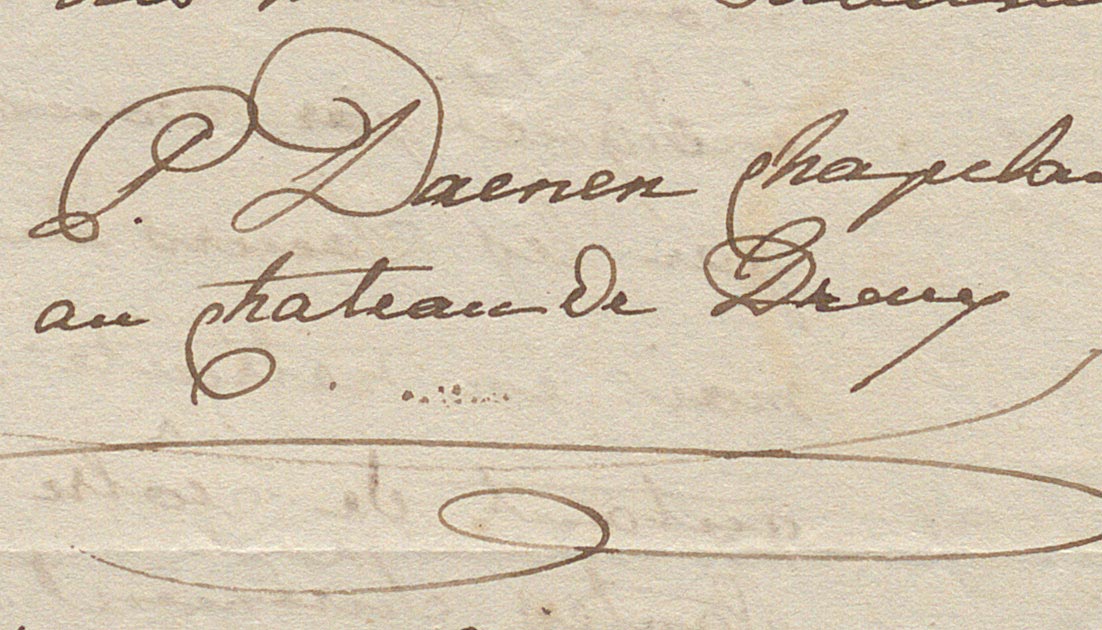 P. Daenen Chapelai
au Chateau de Dreux